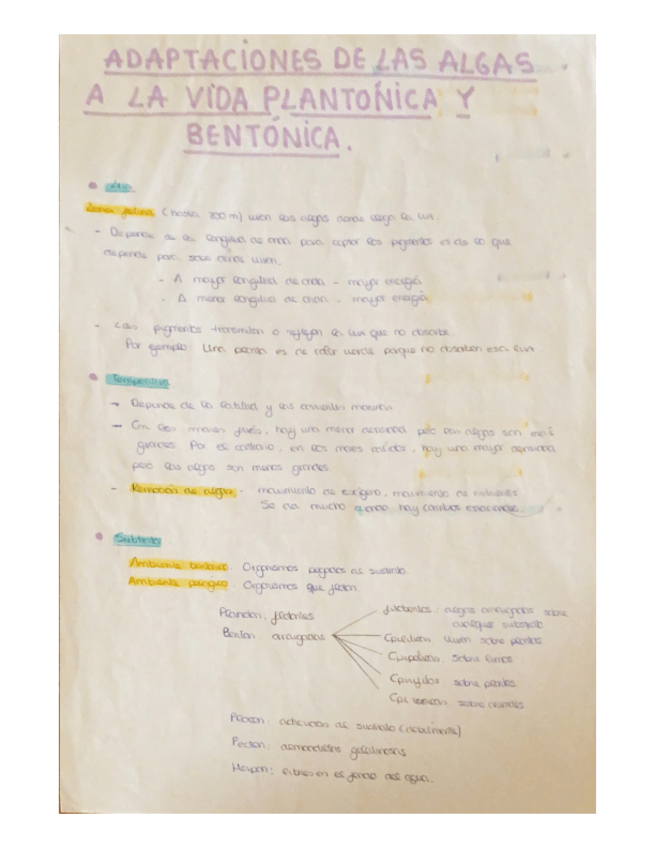 ADAPTACIONES DE LAS ALGAS
A LA VIDA PLANTOÑICA Y
BENTÓNICA.
Zona fótica (hasta 200 m) viven las algas donde llega la luz.
- Depende de la longitud de onda para captar los pigmentos es de lo que
depende para saber donde viven.
- A mayor longitud de onda - mayor energía
- A menor longitud de onda - mayor energía
- Los pigmentos transmiten o reflejan la luz que no absorbe.
Por ejemplo: Una planta es de color verde porque no absorben esa luz.
Temperatura
- Depende de la latitud y las corrientes marinas
- En los mares fríos, hay una menor densidad pero las algas son más
grandes. Por el contrario, en los mares cálidos, hay una mayor densidad
pero las algas son menos grandes.
- Remoción de algas: movimiento de oxígeno, movimiento de nutrientes
Se da mucho cuando hay cambios estacionales.
Sustrato
Ambiente bentónico: Organismos pegados al sustrato
Ambiente pelágico: Organismos que flotan
Plancton: flotantes
Benton: arraigadas
algas arraigadas sobre
cualquier substrato
viven sobre plantas
sobre limos
sobre piedras
sobre animales
adheridas al sustrato
Pecton: almohadillas gelatinosas
en el fondo del agua.